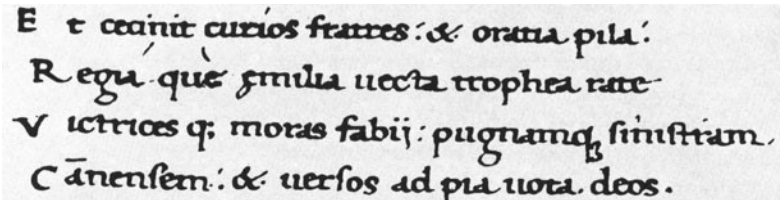 E t cecinit curios fratres: & oratia pila:
R egū què ęmilia uecta trophea rate
V ictrices q; moras fabij: pugnamq; sinistram.
C ānensem: & uersos ad pia uota. deos.